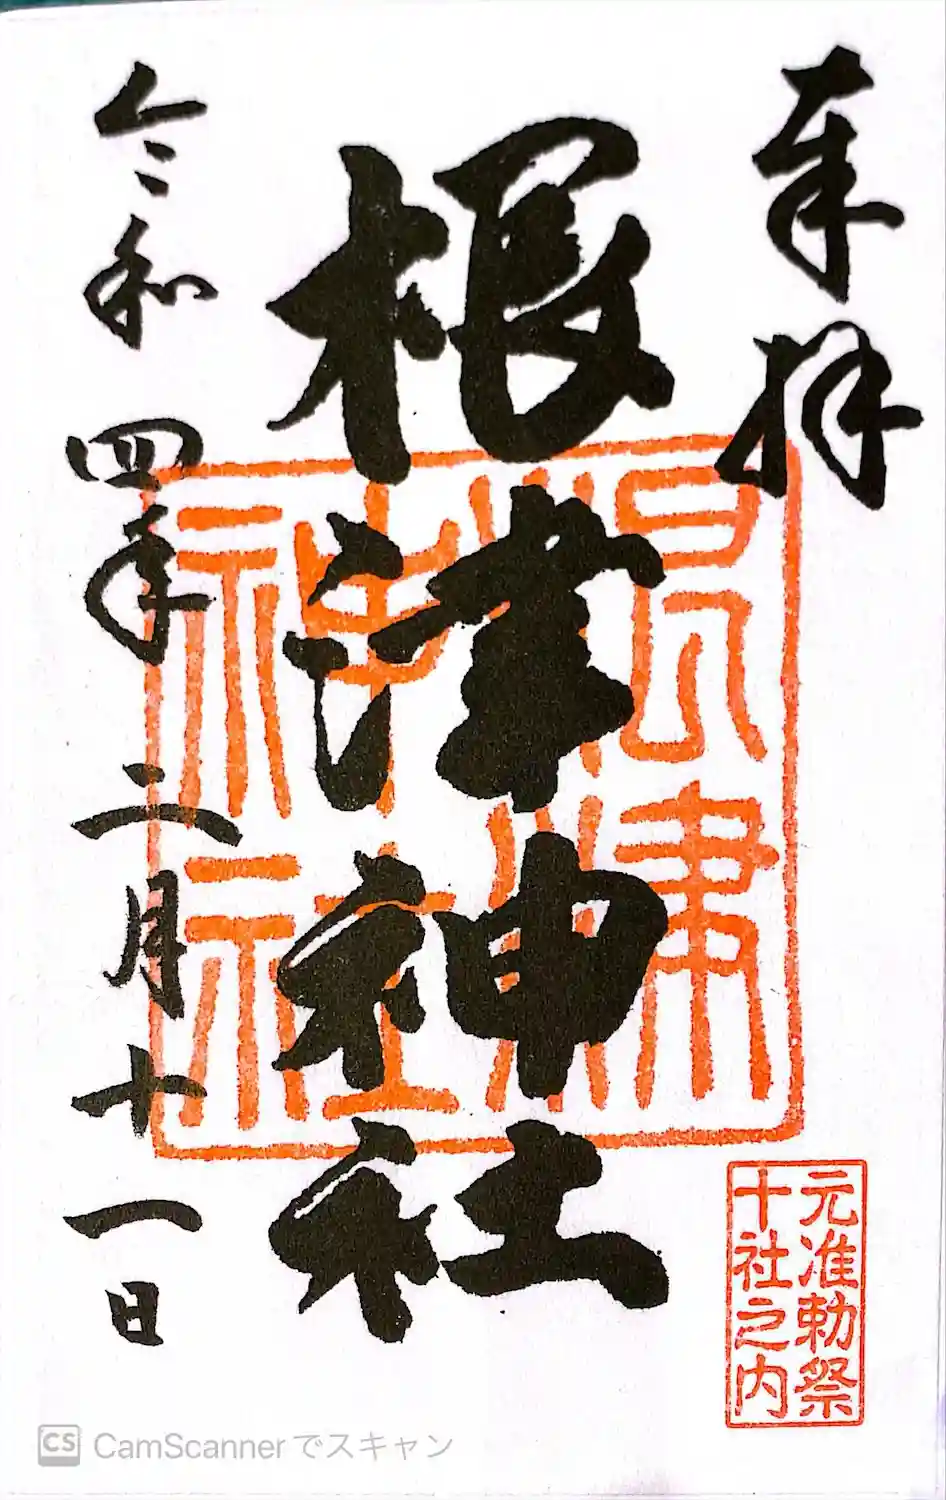 奉拝
根津神社
令和四年二月十一日
根津
神社
元准勅祭
十社之内
CS CamScannerでスキャン